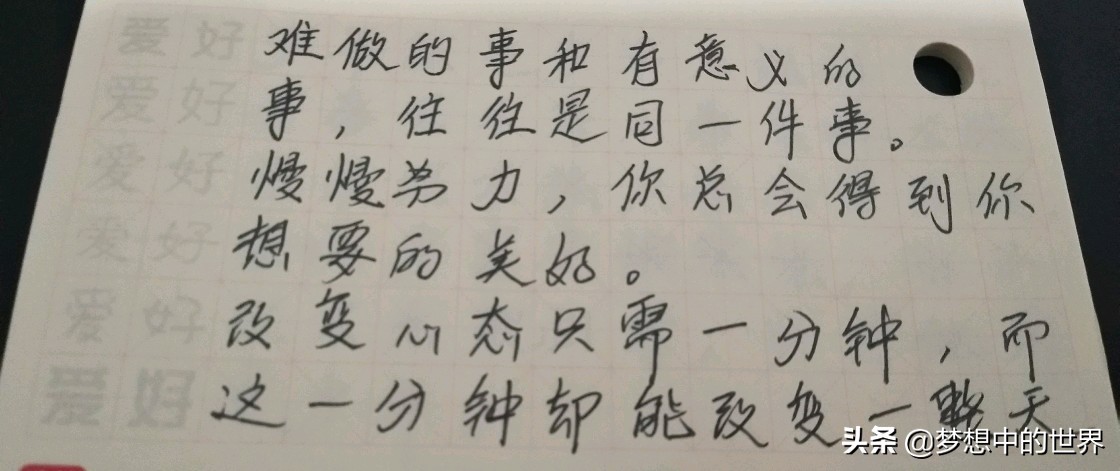 爱好 难做的事和有意义的
爱好 事，往往是同一件事。
爱好 慢慢努力，你总会得到你
爱好 想要的美好。
爱好 改变心态只需一分钟，而
爱好 这一分钟却能改变一整天
头条 @梦想中的世界